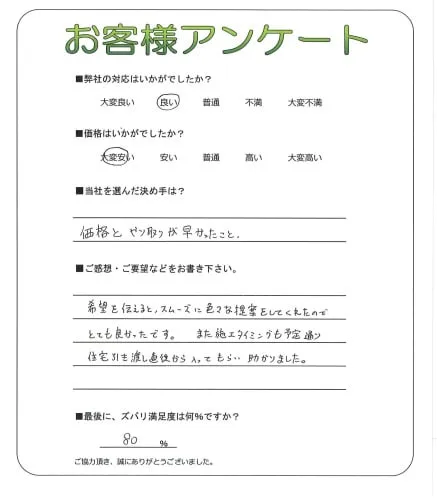 お客様アンケート
■弊社の対応はいかがでしたか？
大変良い 良い 普通 不満 大変不満
■価格はいかがでしたか？
大変安い 安い 普通 高い 大変高い
■当社を選んだ決め手は？
価格と やり取りが早かったこと.
■ご感想・ご要望などをお書き下さい。
希望を伝えると,スムーズに色々な提案をしてくれたので
とても良かったです。 また施工タイミングも予定通り
住宅引き渡し直後から入ってもらい助かりました。
■最後に、ズバリ満足度は何%ですか？
80 %
ご協力頂き、誠にありがとうございました。